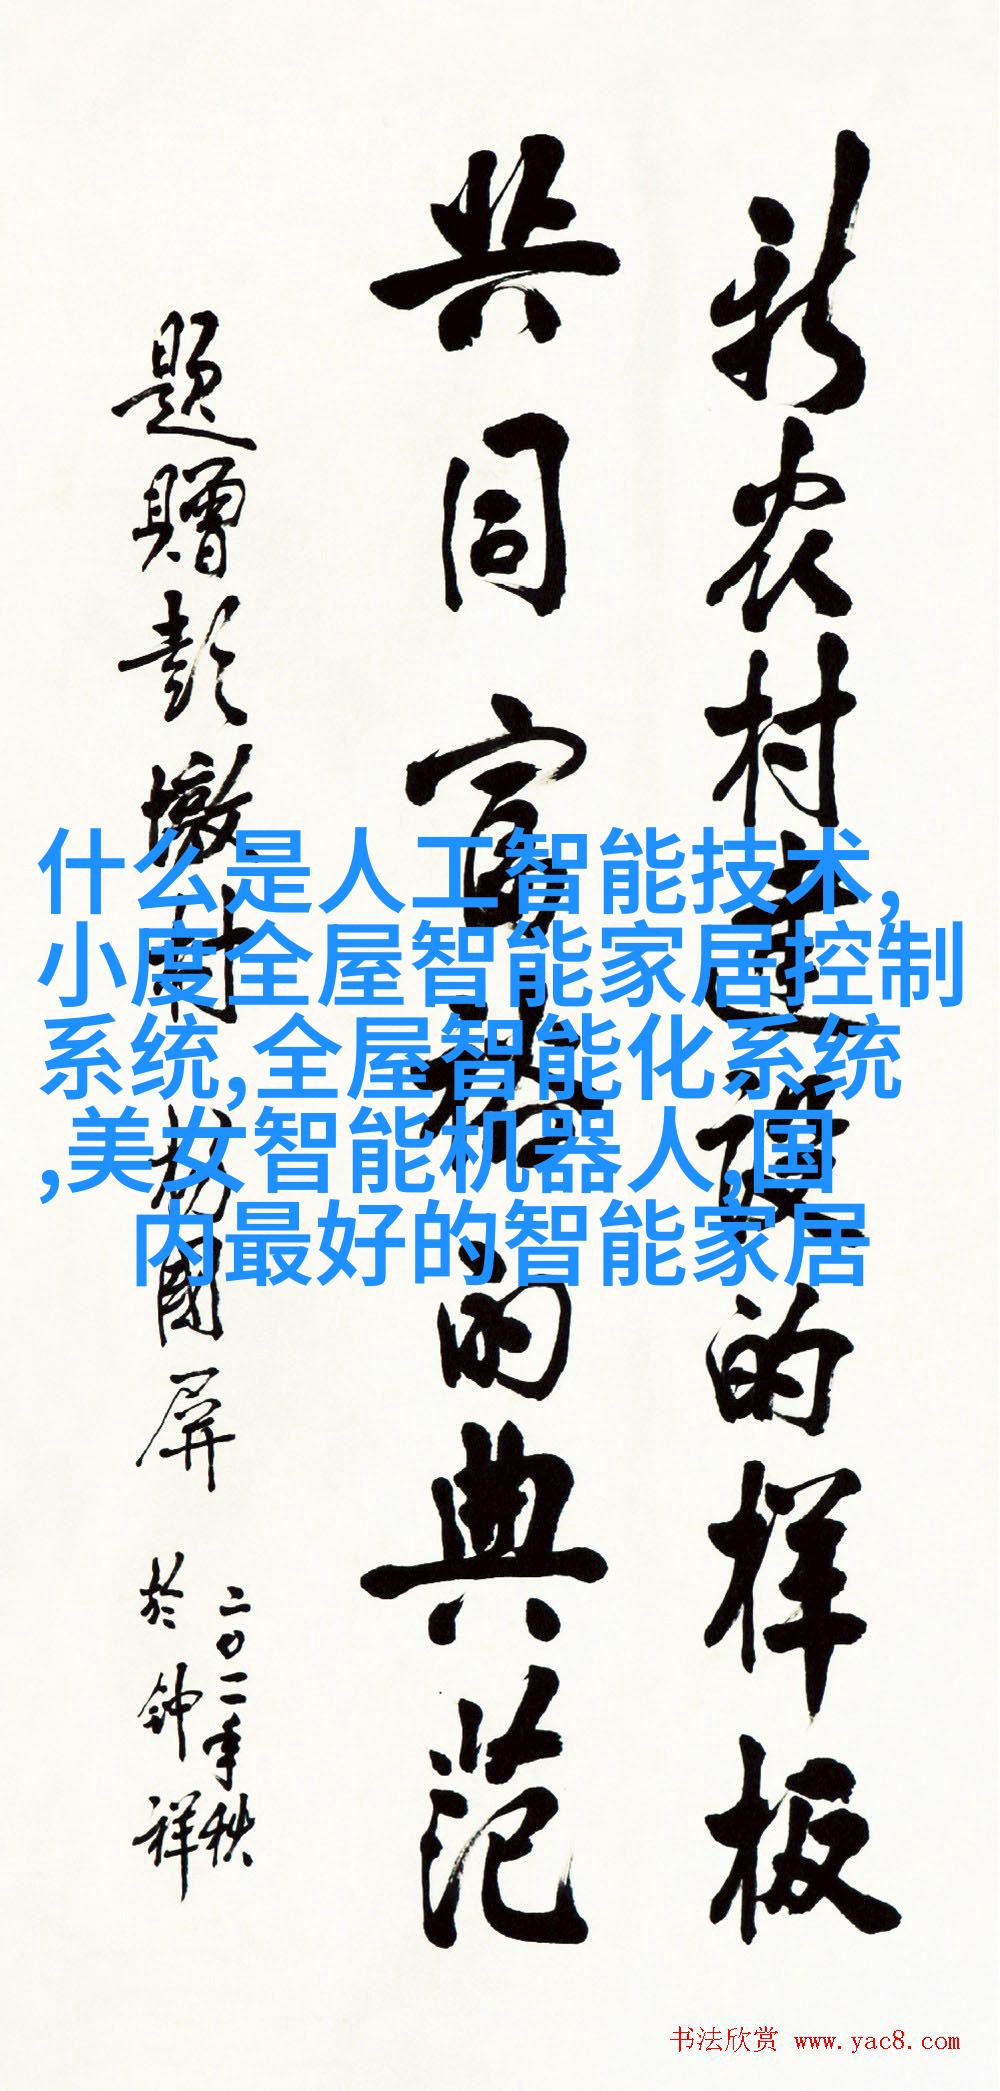 新农村建设的样板
共同富裕的典范
题赠彭墩村 杨国屏
二〇一一年秋
於钟祥
什么是人工智能技术,
小度全屋智能家居控制
系统,全屋智能化系统
,美女智能机器人,国
内最好的智能家居
书法欣赏 www.yac8.com